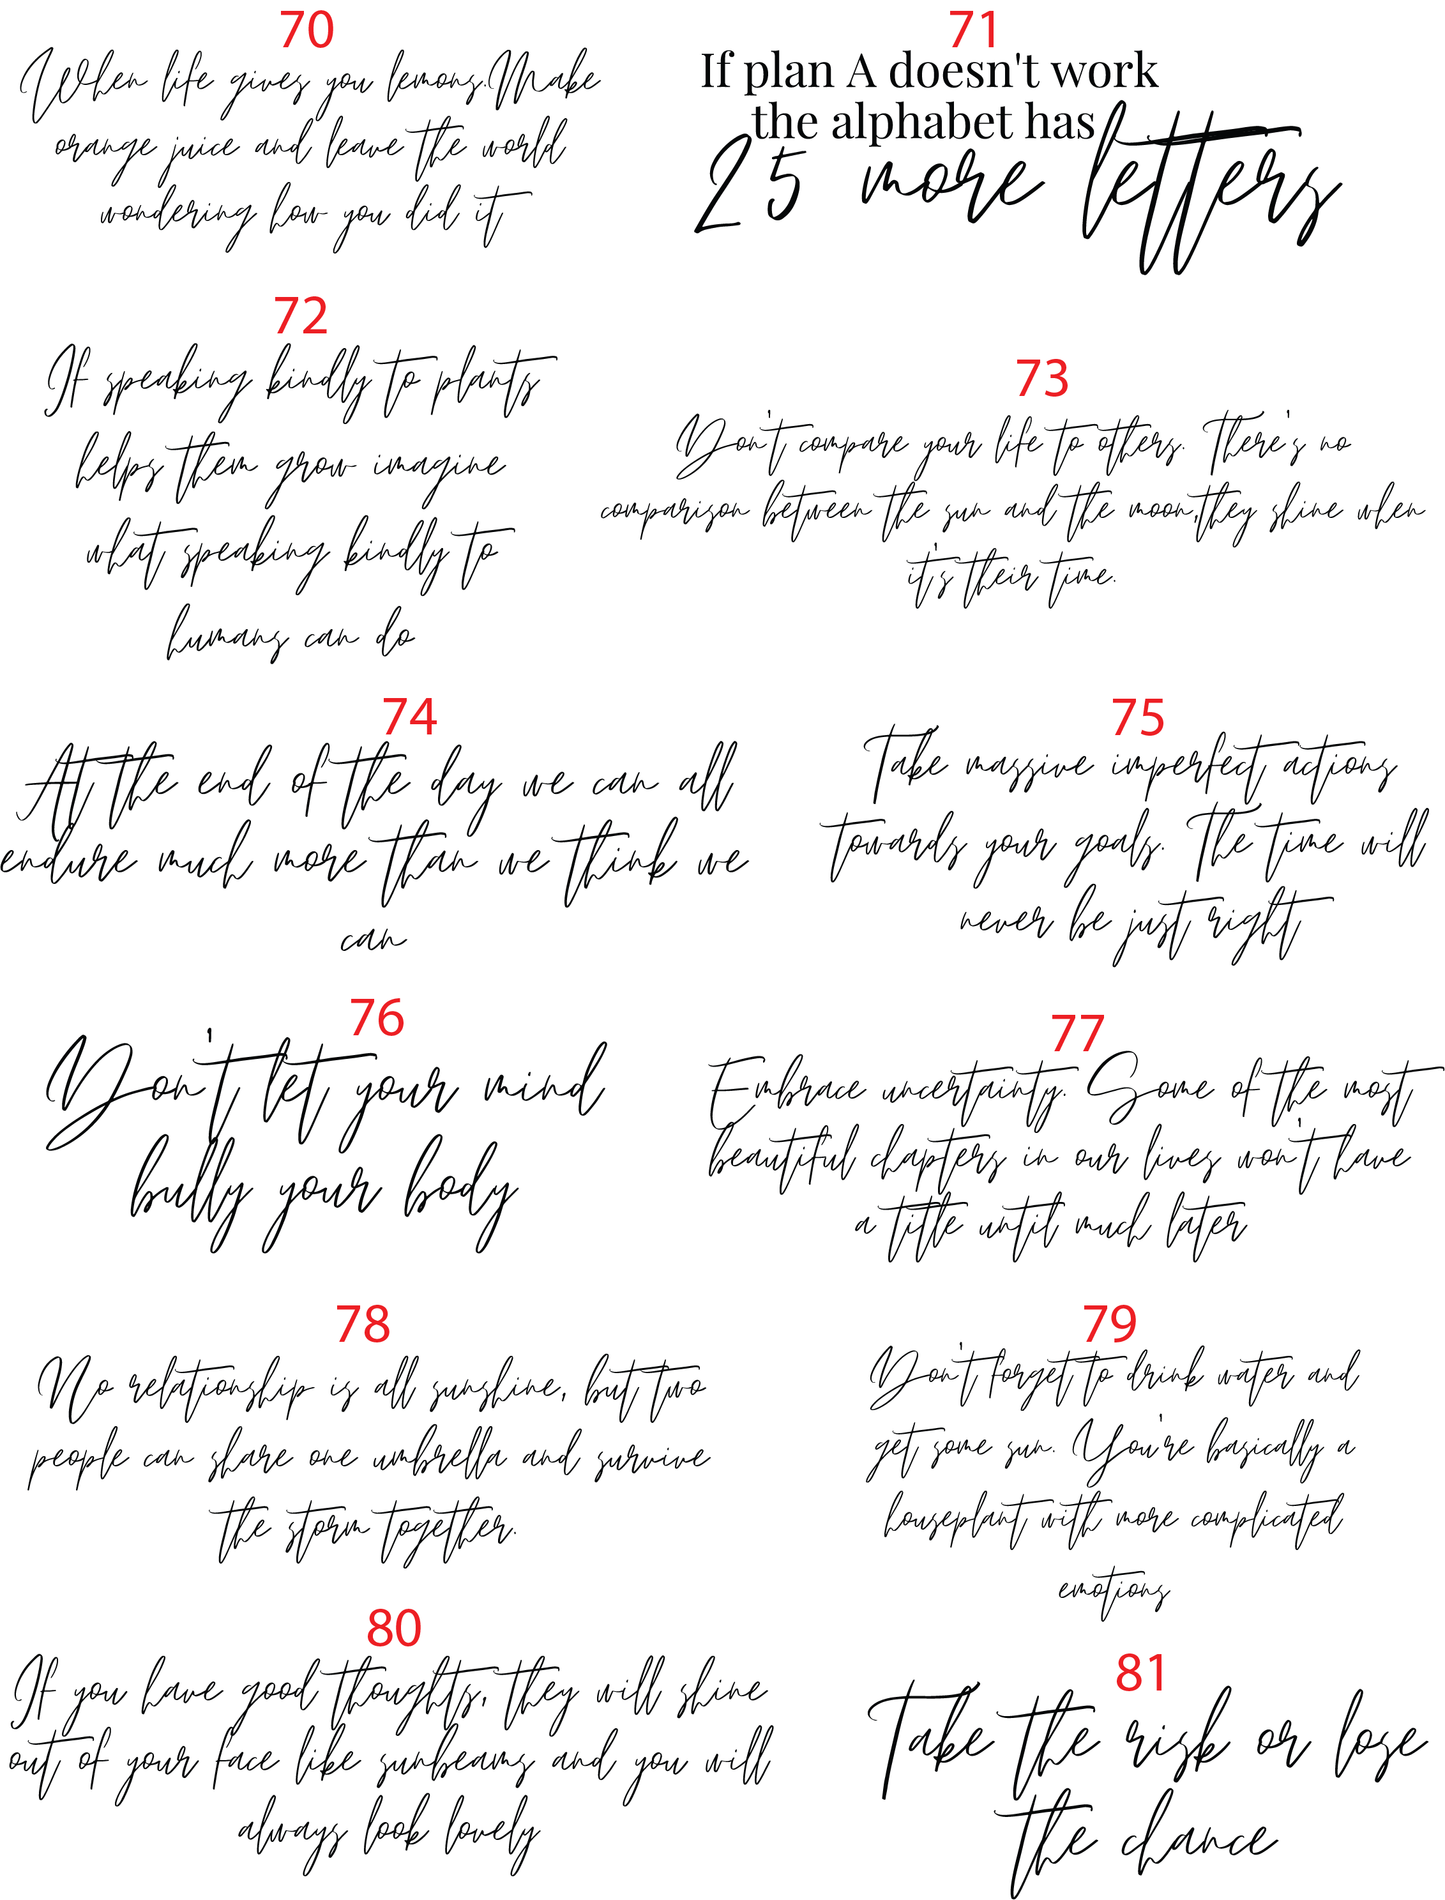 70
When life gives you lemons.Make
orange juice and leave the world
wondering how you did it
71
If plan A doesn't work
the alphabet has
25 more letters
72
If speaking kindly to plants
helps them grow imagine
what speaking kindly to
humans can do
73
Don't compare your life to others. There's no
comparison between the sun and the moon,they shine when
it's their time.
74
At the end of the day we can all
endure much more than we think we
can
75
Take massive imperfect actions
towards your goals. The time will
never be just right
76
Don't let your mind
bully your body
77
Embrace uncertainty. Some of the most
beautiful chapters in our lives won't have
a title until much later
78
No relationship is all sunshine, but two
people can share one umbrella and survive
the storm together.
79
Don't forget to drink water and
get some sun. You're basically a
houseplant with more complicated
emotions
80
If you have good thoughts, they will shine
out of your face like sunbeams and you will
always look lovely
81
Take the risk or lose
the chance